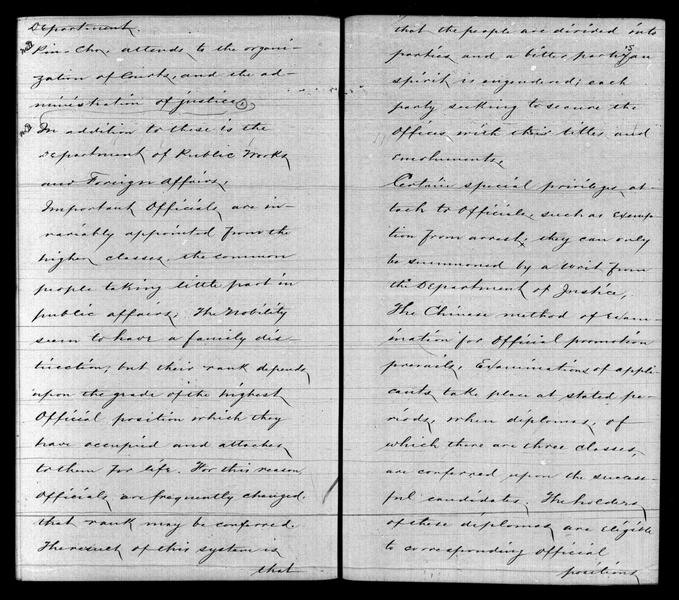 Department.
Pin-Cho, attends to the organi-
zation of Courts, and the ad-
ministration of justice.
In addition to these is the
Department of Public Works
and Foreign Affairs.
Important Officials are in-
variably appointed from the
higher classes, the common
people taking little part in
public affairs. The Nobility
seem to have a family dis-
tinction, but their rank depends
upon the grade of the highest
Official position which they
have occupied and attaches
to them for life. For this reason
Officials are frequently changed
that rank may be conferred.
The result of this system is
that
that the people are divided into
parties and a bitter partisan
spirit is engendered; each
party seeking to secure the
Offices with their titles and
emoluments.
Certain special privileges at-
tach to Officials, such as exemp-
tion from arrest; they can only
be summoned by a writ from
the Department of Justice.
The Chinese method of exam-
ination for Official promotion
prevails. Examinations of appli-
cants take place at stated pe-
riods, when diplomas, of
which there are three classes,
are conferred upon the success-
ful candidates. The holders
of these diplomas are eligible
to corresponding Official
positions